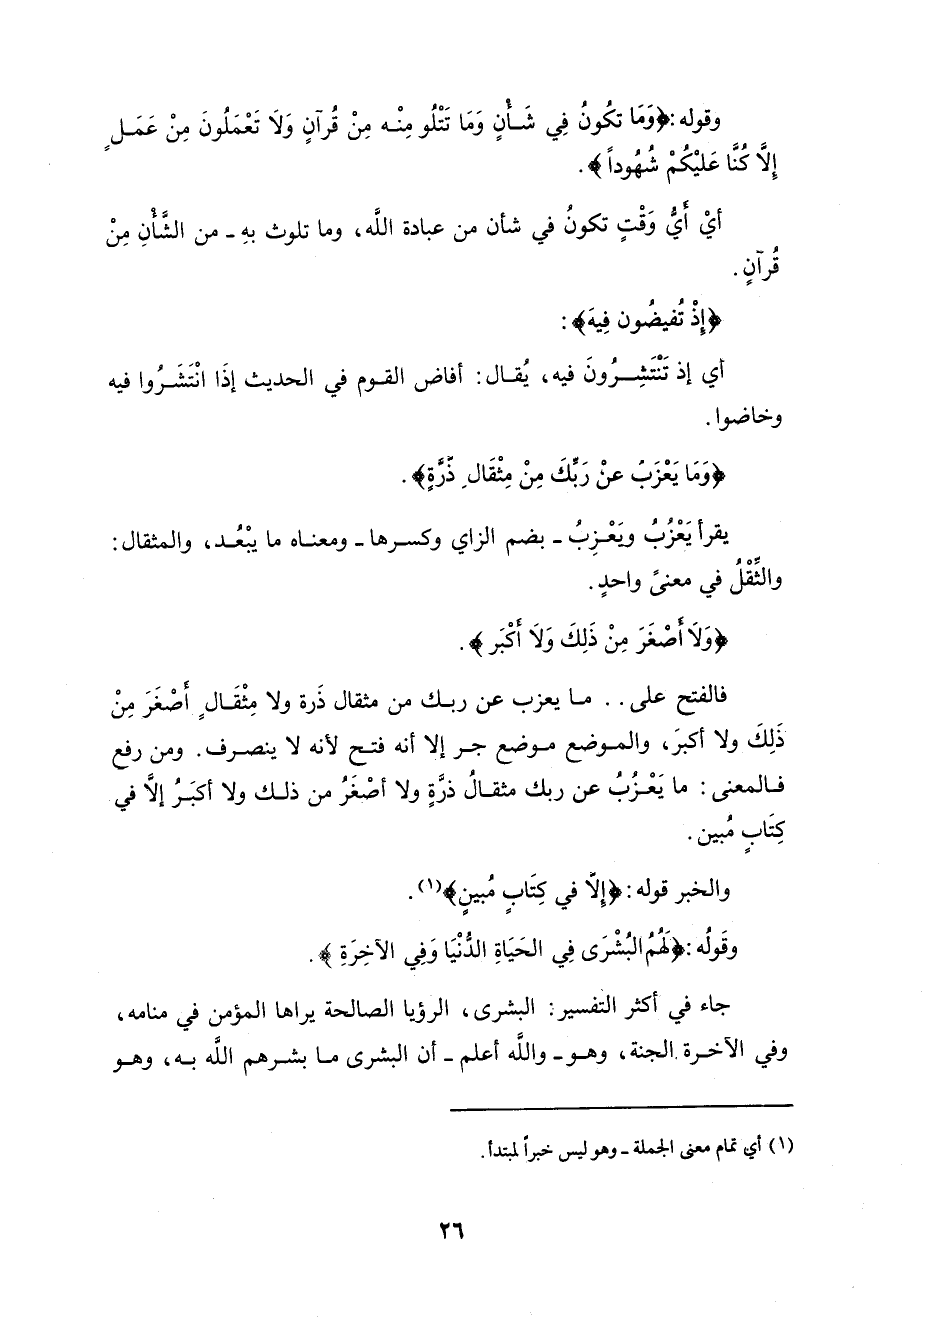 وقوله: ﴿وَمَا تكُونُ فِي شَـأْنٍ وَمَا تَتْلُو مِنْـه مِنْ قُرآنٍ وَلَا تَعْمَلُونَ مِنْ عَمَـلٍ
إِلَّا كُنَّا عَلَيْكُمْ شُهُوداً﴾.
أيْ أَيُّ وَقْتٍ تكونُ في شأن من عبادة اللَّه، وما تلوث بهِ ـ من الشَّأْنِ مِنْ
قُرآنٍ.
﴿إِذْ تُفيضُون فِيهَ﴾:
أي إذ تَنْتَشِـرُونَ فيه، يُقـال: أفاض القـوم في الحديث إذَا انْتَشَـرُوا فيه
وخاضوا.
﴿وَمَا يَعْزَبُ عنْ رَبِّكَ مِنْ مِثْقَالِ ذَرَّةٍ﴾.
يقرأ يَعْزُبُ ويَعْـزِبُ ـ بضم الزاي وكسـرها ـ ومعنـاه ما يبْعُـد، والمثقال:
والثِّقْلُ في معنىً واحدٍ.
﴿وَلَا أَصْغَرَ مِنْ ذَلِكَ وَلَا أَكْبَر﴾.
فالفتح على.. مـا يعزب عن ربـك من مثقال ذَرة ولا مِثْقَـالٍ أَصْغَرَ مِنْ
ذَلِكَ ولا أكبرَ، والمـوضع مـوضع جـر إلا أنه فتـح لأنه لا ينصـرف. ومن رفع
فـالمعنى: ما يَعْـزُبُ عن ربك مثقـالُ ذرَّةٍ ولا أصْغَرُ من ذلـك ولا أكبَـرُ إلَّا في
كِتَابٍ مُبينٍ.
والخبر قوله: ﴿إِلَّا في كِتَابٍ مُبينٍ﴾(١).
وقَولُه: ﴿لَهُمُ البُشْرَى فِي الحَيَاةِ الدُّنْيَا وَفي الآخِرَةِ﴾.
جاء في أكثر التفسير: البشرى، الرؤيا الصالحة يراها المؤمن في منامه،
وفي الآخـرة الجنة، وهـو ـ واللَّه أعلم ـ أن البشرى مـا بشـرهم اللَّه بـه، وهـو
(١) أي تمام معنى الجملة ـ وهو ليس خبراً لمبتدأ.
٢٦